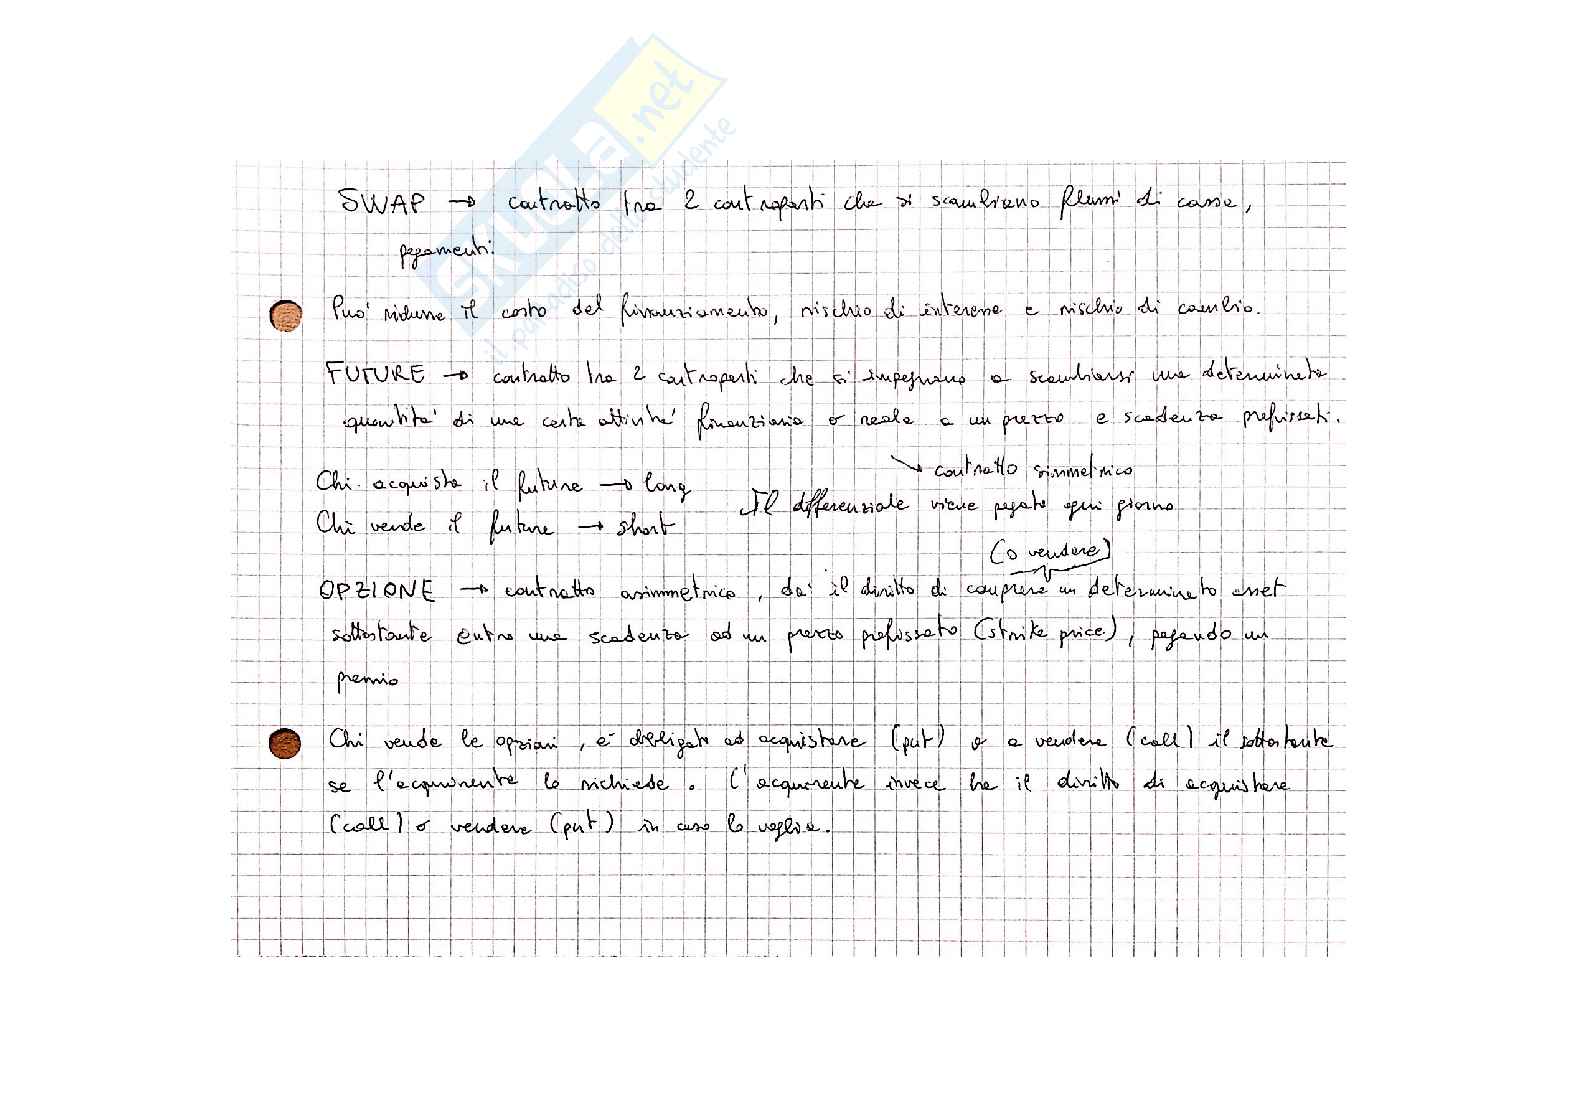 SKUOLA.net
il paradiso dello studente
SWAP → contratto tra 2 controparti che si scambiano flussi di cassa,
pagamenti.
Puo' ridurre il costo del finanziamento, rischio di interesse e rischio di cambio.
FUTURE → contratto tra 2 controparti che si impegnano a scambiarsi una determinata
quantita' di una certa attivita' finanziaria o reale a un prezzo e scadenza prefissati.
↘ contratto simmetrico
Chi acquista il future → long
Il differenziale viene pagato ogni giorno
Chi vende il future → short
(o vendere)
OPZIONE → contratto asimmetrico, da' il diritto di comprare un determinato asset
sottostante entro una scadenza ad un prezzo prefissato (strike price), pagando un
premio
Chi vende le opzioni, e' obbligato ad acquistare (put) o a vendere (call) il sottostante
se l'acquirente lo richiede. L'acquirente invece ha il diritto di acquistare
(call) o vendere (put) in caso lo voglia.